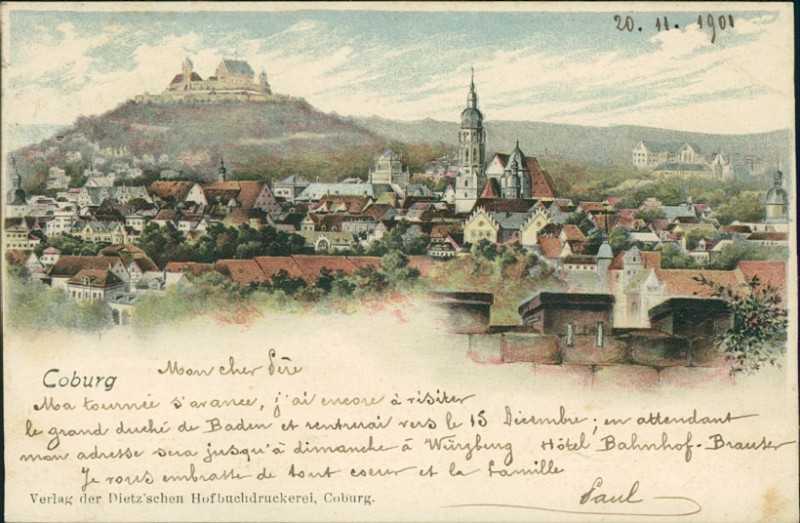 20. 11. 1901
Coburg
Mon cher Père
Ma tournée s'avance, j'ai encore à visiter
le grand duché de Baden et rentrerai vers le 15 Décembre; en attendant
mon adresse sera jusqu'à dimanche à Würzburg Hôtel Bahnhof-Brauser
Je vous embrasse de tout coeur et la famille
Paul
Verlag der Dietz'schen Hofbuchdruckerei, Coburg.